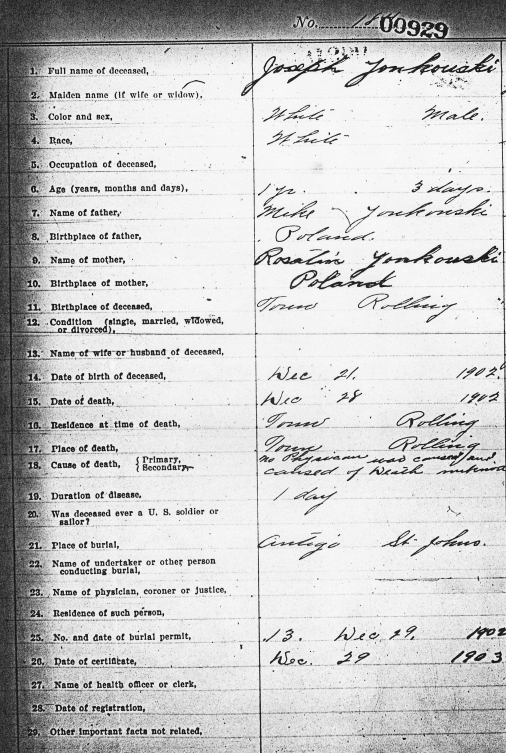 No. 00929
1. Full name of deceased, Joseph Jonkouski
2. Maiden name (if wife or widow),
3. Color and sex, White Male.
4. Race, White
5. Occupation of deceased,
6. Age (years, months and days), 1 yr. 3 days.
7. Name of father, Mike Jonkouski
8. Birthplace of father, Poland.
9. Name of mother, Rosalin Jonkouski
10. Birthplace of mother, Poland
11. Birthplace of deceased, Town Rolling
12. Condition (single, married, widowed,
or divorced),
13. Name of wife or husband of deceased,
14. Date of birth of deceased, Dec 21. 1902.
15. Date of death, Dec 28 1902
16. Residence at time of death, Town Rolling
17. Place of death, Town Rolling
18. Cause of death, { Primary, no Physician
Secondary, caused of Death
19. Duration of disease, 1 day
20. Was deceased ever a U. S. soldier or
sailor?
21. Place of burial, Antigo St. Johns.
22. Name of undertaker or other person
conducting burial,
23. Name of physician, coroner or justice,
24. Residence of such person,
25. No. and date of burial permit, 13. Dec 29. 1902
26. Date of certificate, Dec. 29 1903
27. Name of health officer or clerk,
28. Date of registration,
29. Other important facts not related,